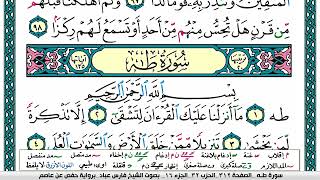 الْمُتَّقِينَ وَتُنذِرَ بِهِ قَوْمًا لُّدًّا ٩٧ وَكَمْ أَهْلَكْنَا قَبْلَهُم
مِّن قَرْنٍ هَلْ تُحِسُّ مِنْهُم مِّنْ أَحَدٍ أَوْ تَسْمَعُ لَهُمْ رِكْزًا ٩٨
سُورَةُ طه
بِسْمِ اللَّهِ الرَّحْمَٰنِ الرَّحِيمِ
طه ١ مَا أَنزَلْنَا عَلَيْكَ الْقُرْآنَ لِتَشْقَىٰ ٢ إِلَّا تَذْكِرَةً
لِّمَن يَخْشَىٰ ٣ تَنزِيلًا مِّمَّنْ خَلَقَ الْأَرْضَ وَالسَّمَاوَاتِ الْعُلَى ٤
سورة طـه، الصفحة ٣١٢ الحزب ٣٢ الجزء ١٦، بصوت الشيخ فارس عباد .برواية حفص عن عاصم